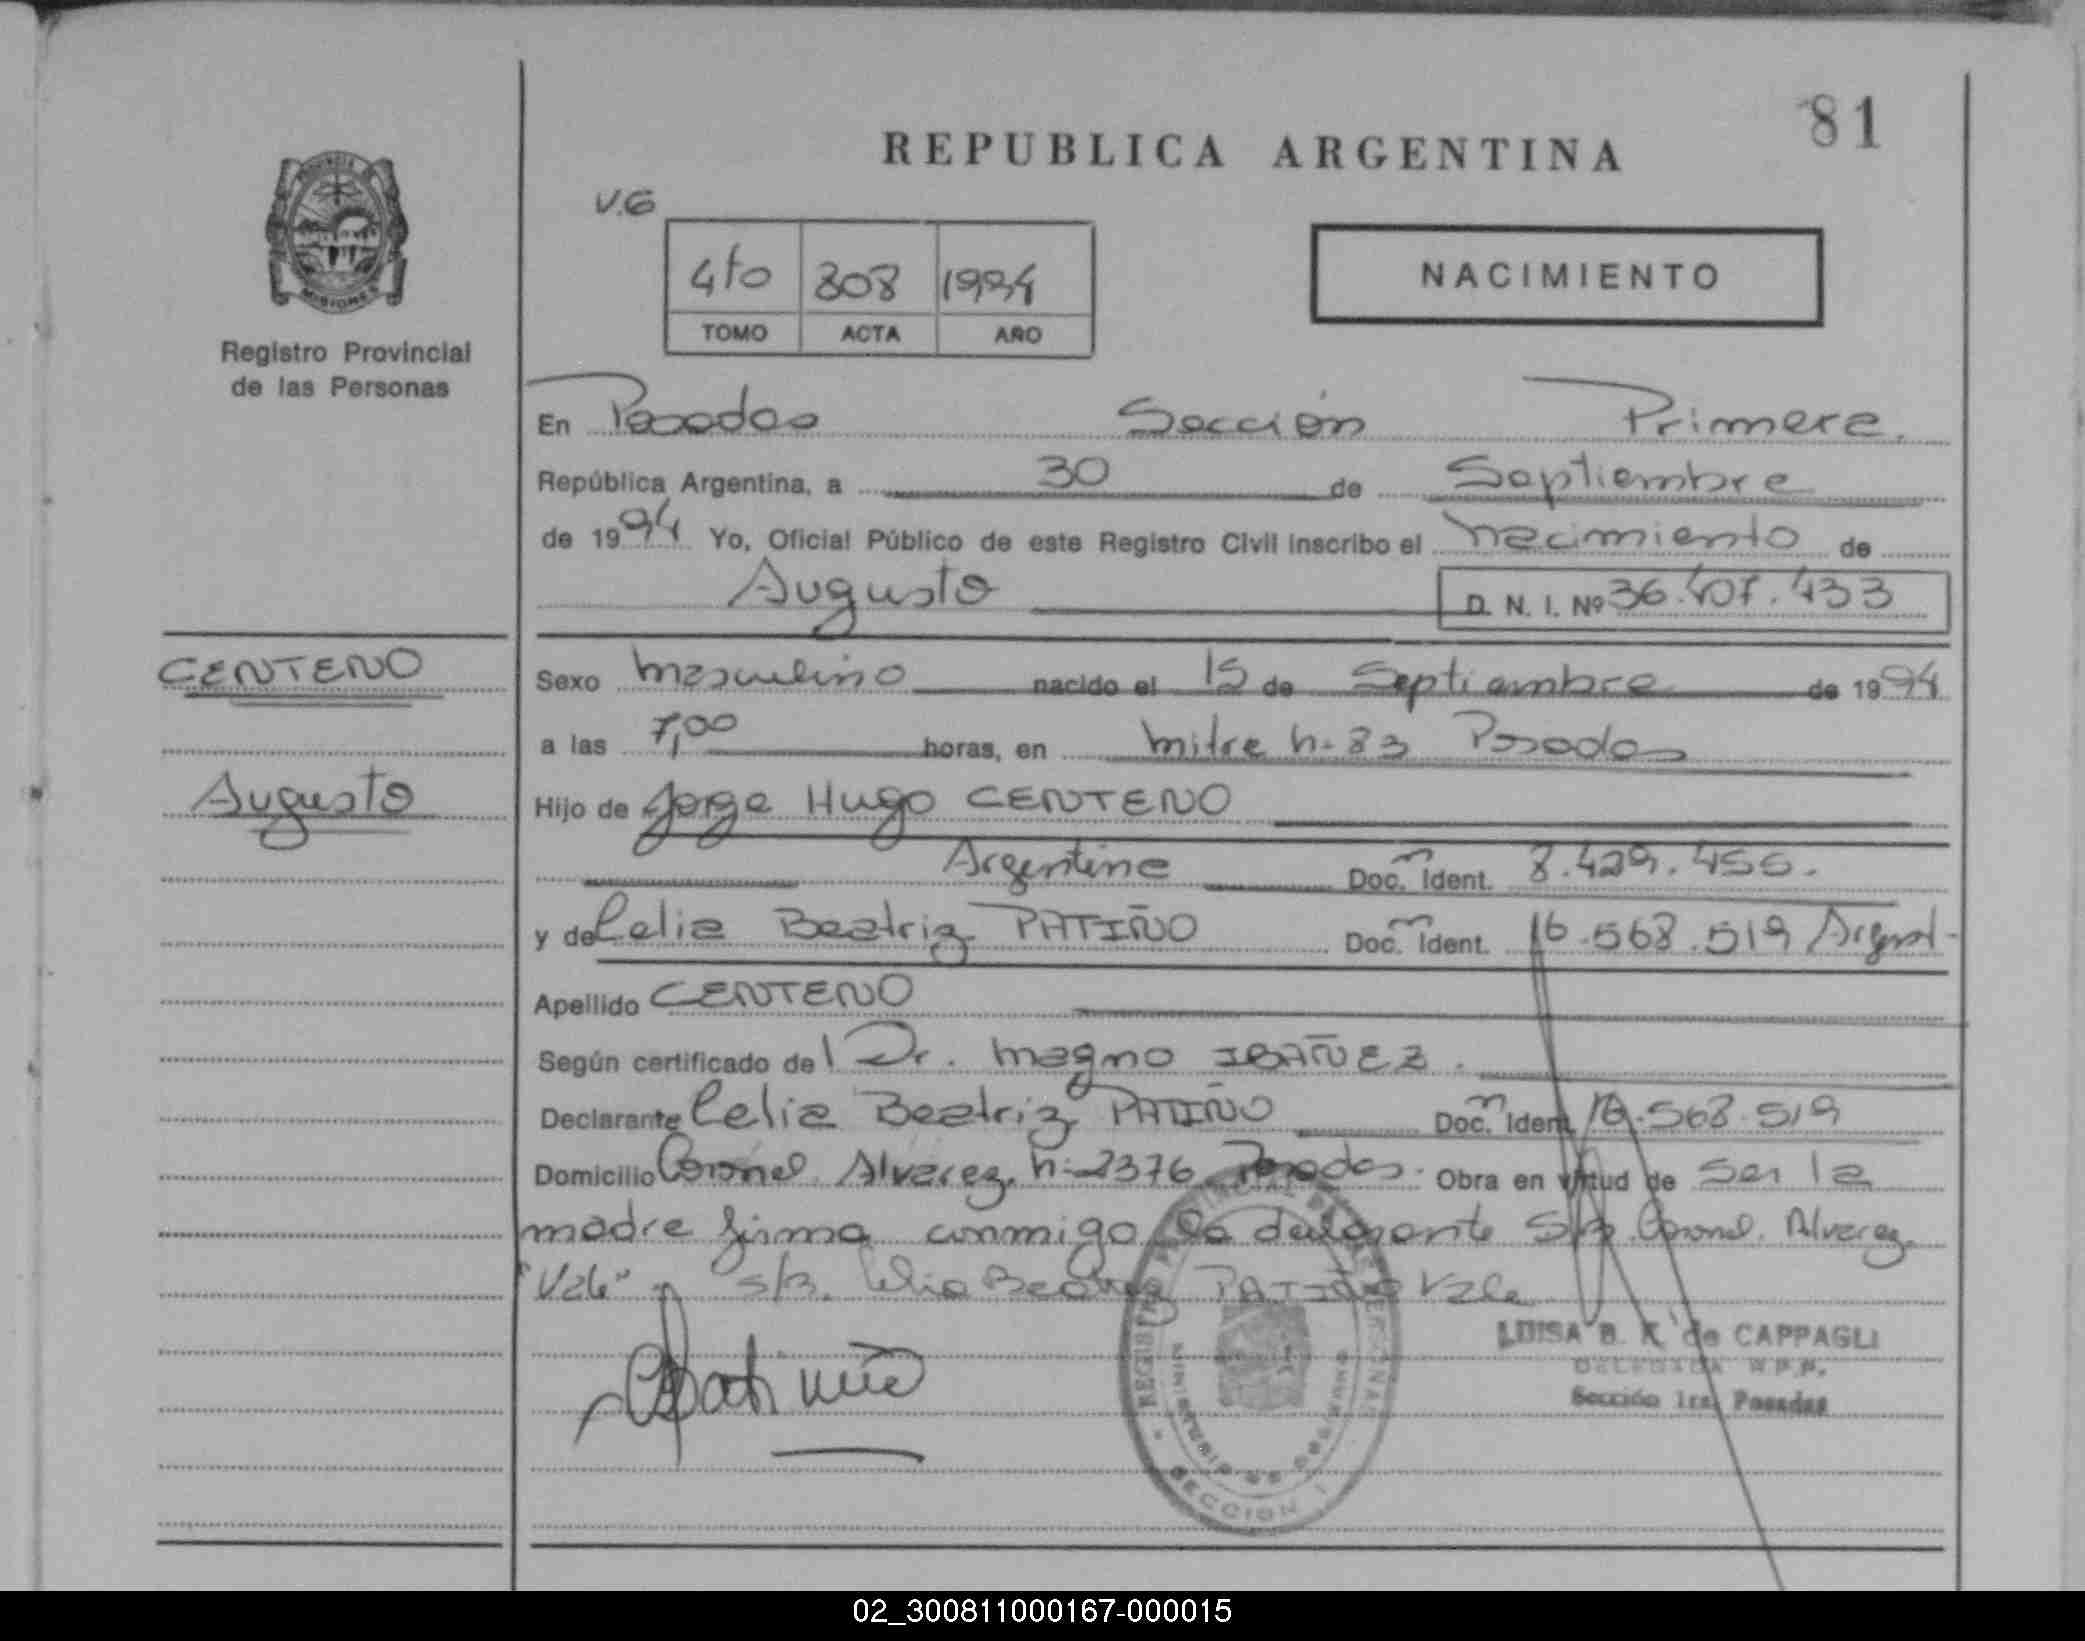 81
REPUBLICA ARGENTINA
V.G
4to 308 1994
TOMO ACTA AÑO
NACIMIENTO
Registro Provincial
de las Personas
En Posadas Sección Primera.
República Argentina, a 30 de Septiembre
de 1994 Yo, Oficial Público de este Registro Civil inscribo el nacimiento de
Augusto D. N. I. Nº 36.407.433
CENTENO
Augusto
Sexo masculino nacido el 15 de Septiembre de 1994
a las 7,00 horas, en mitre n- 83 Posadas
Hijo de Jorge Hugo CENTENO
Argentina Doc. Ident. 8.429.456.
y de Celia Beatriz PATIÑO Doc. Ident. 16.568.519 Argent-
Apellido CENTENO
Según certificado del Dr. magno IBAÑEZ.
Declarante Celia Beatriz PATIÑO Doc. Ident. 16.568.519
Domicilio Coronel Alvarez n- 2376 Posadas. Obra en virtud de ser la
madre firma conmigo la declarante S/B. Coronel. Alvarez.
"Vale" S/B. Celia Beatriz PATIÑO Vale
LUISA B. K. de CAPPAGLI
DELEGADA R.P.P.
Sección 1ra. Posadas
SECCION 1
02_300811000167-000015